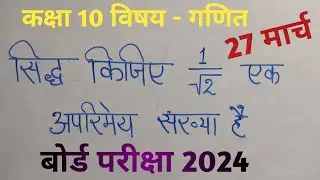 कक्षा 10 विषय - गणित
27 मार्च
सिद्ध किजिए 1/√2 एक
अपरिमेय संख्या है
बोर्ड परीक्षा 2024